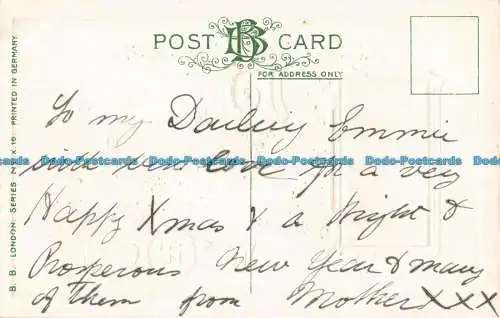 POST BB CARD
FOR ADDRESS ONLY
B. B. LONDON. SERIES No X 16 PRINTED IN GERMANY.
To my Darling Emmie
with best love for a very
Happy Xmas & a Bright &
Prosperous New Year & many
of them from Mother XXX
Dodo-Postcards Dodo-Postcards Dodo-Postcards Dodo-Postcards Dodo-Postcards Dodo-Postcards Dodo-Postcards